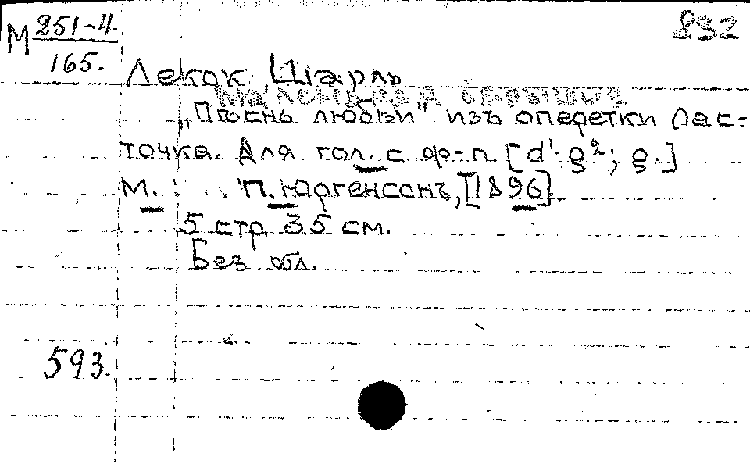 М 251-4.
165.
832
Лекок Шарль
Маленькая барышня
„Пѣснь любви" изъ оперетки Лас-
точка. Для гол. с ф-п [d¹-g²; g.]
М. : П. Юргенсонъ, [1896]
5 стр 35 см.
Без обл.
593.